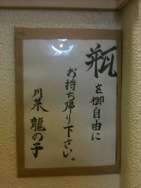 瓶を御自由に
お持ち帰り下さい。
川菜 龍の子